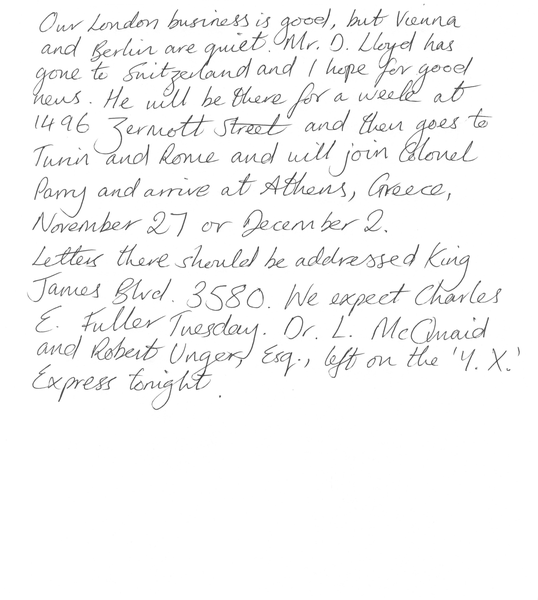 Our London business is good, but Vienna
and Berlin are quiet. Mr. D. Lloyd has
gone to Switzerland and I hope for good
news. He will be there for a week at
1496 Zermott Street and then goes to
Turin and Rome and will join Colonel
Parry and arrive at Athens, Greece,
November 27 or December 2.
Letters there should be addressed King
James Blvd. 3580. We expect Charles
E. Fuller Tuesday. Dr. L. McQuaid
and Robert Unger, Esq., left on the 'Y. X.'
Express tonight.